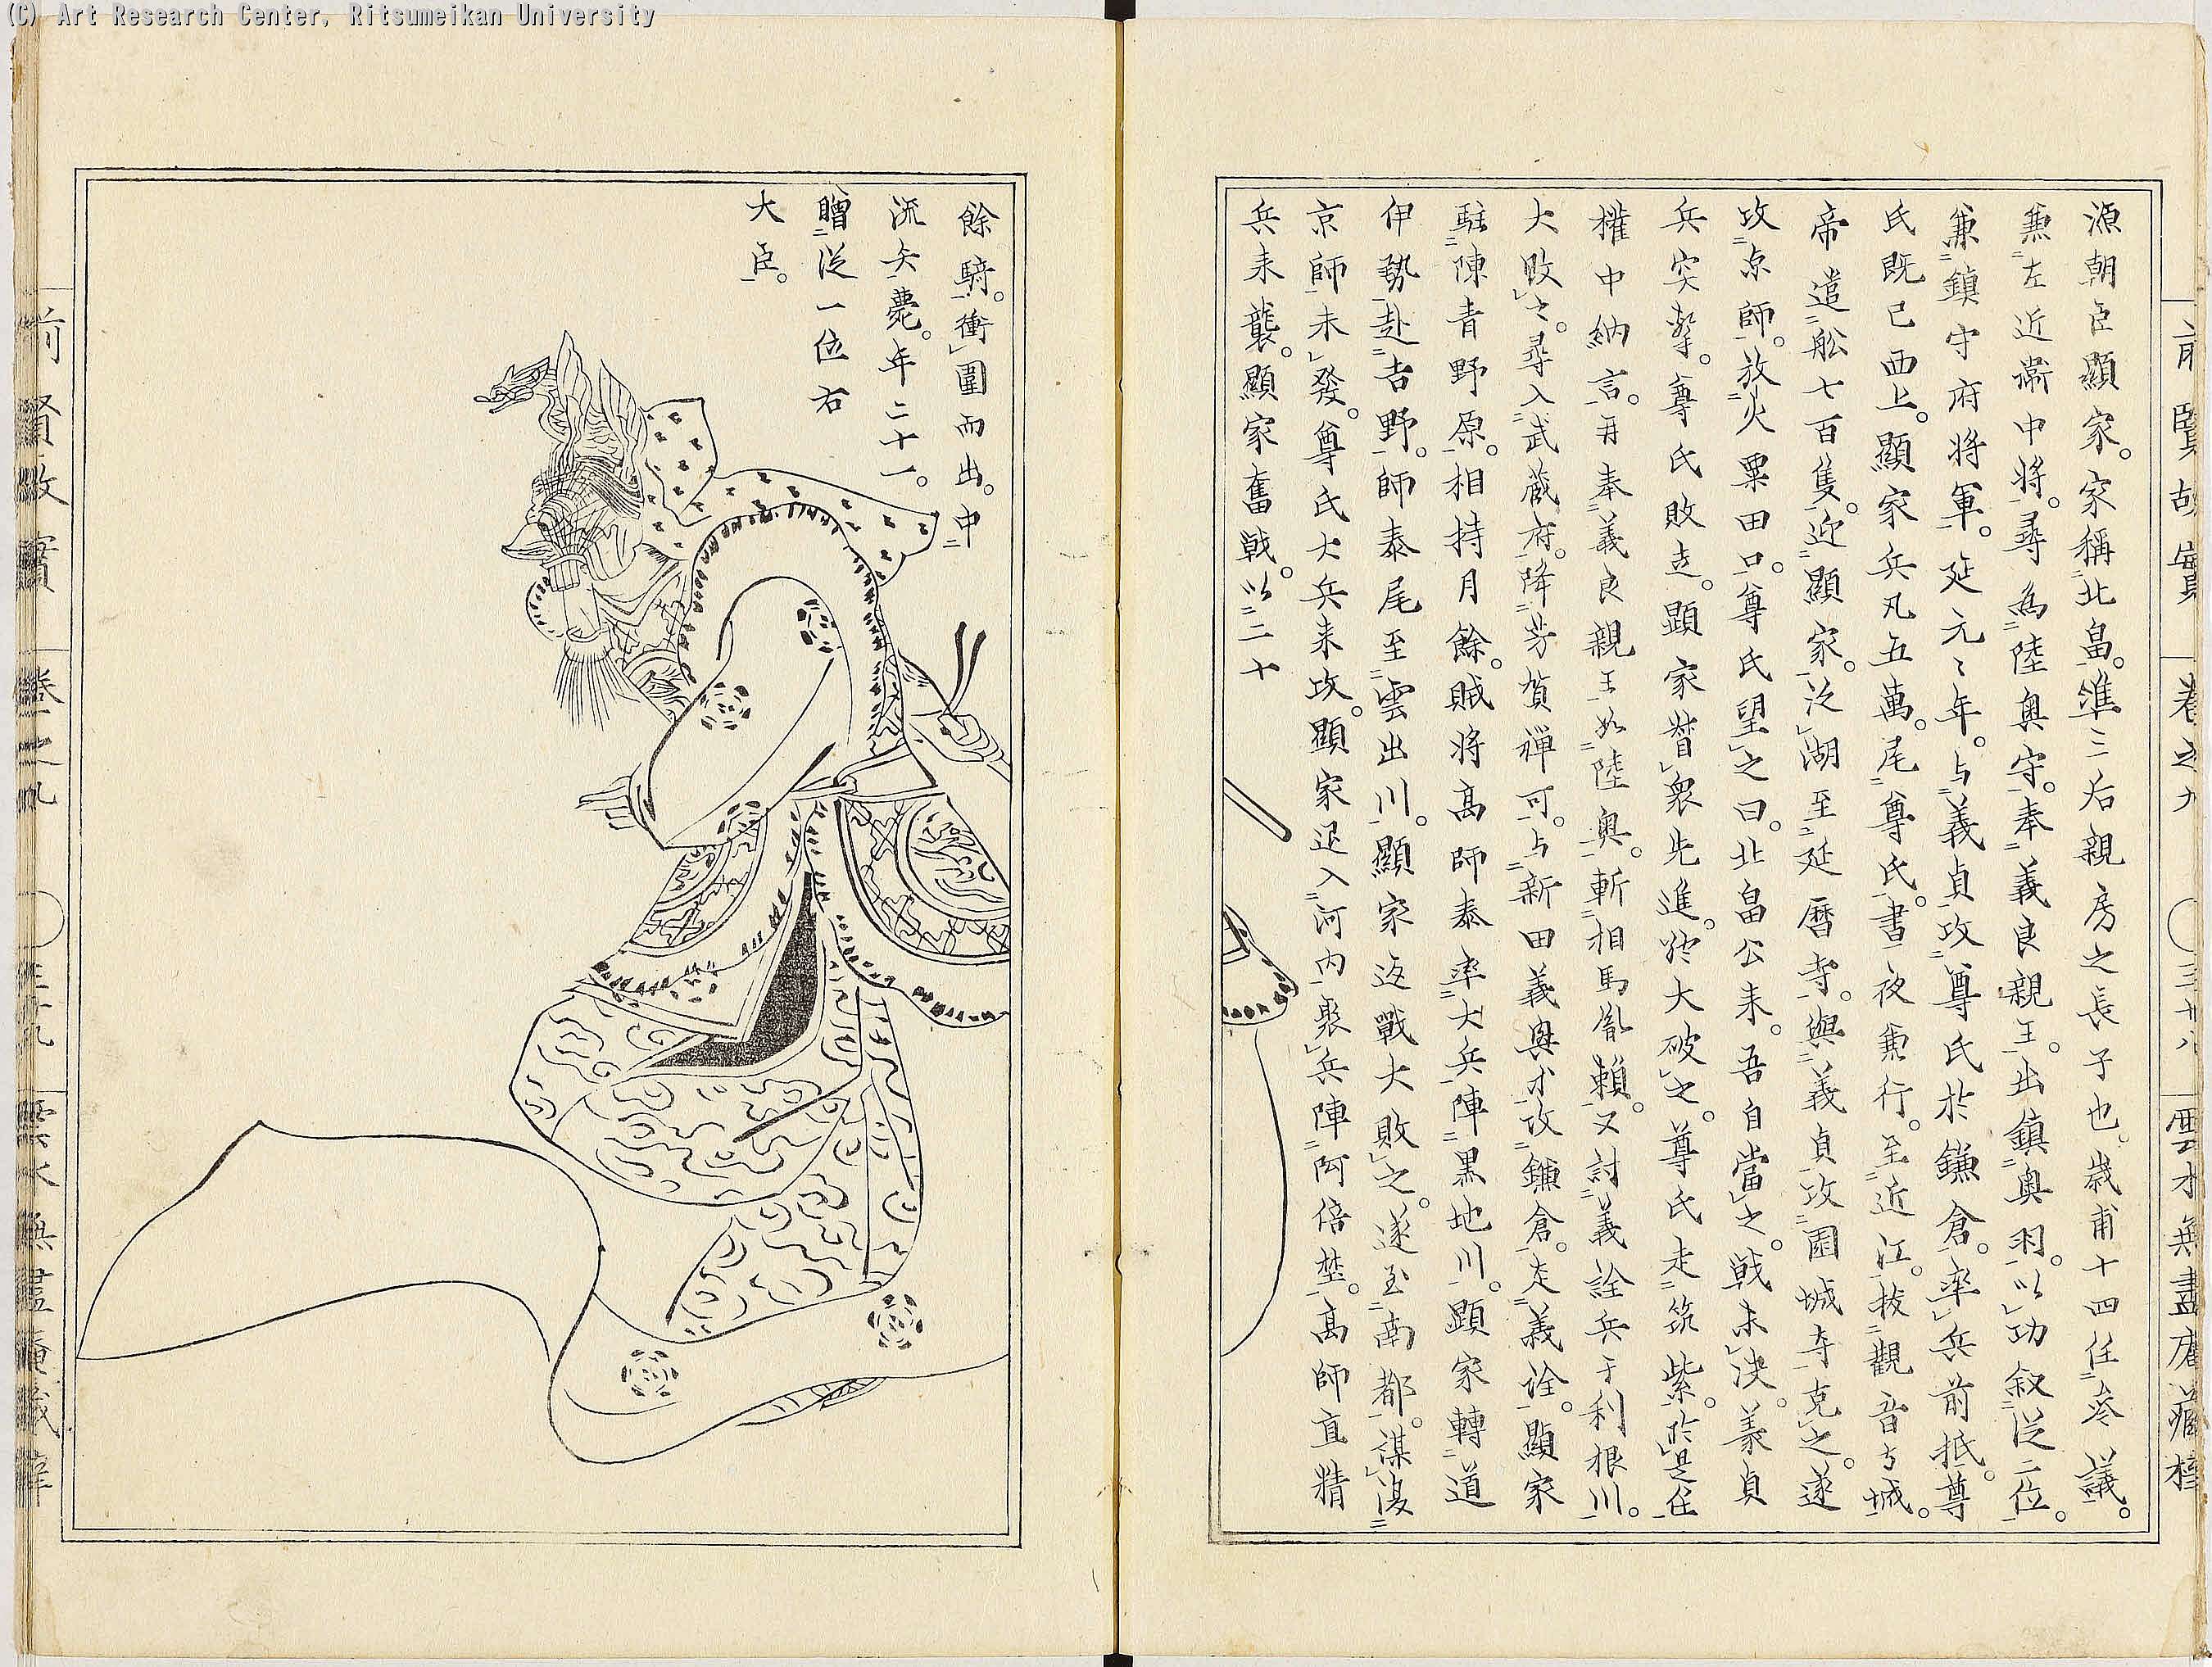 (C) Art Research Center, Ritsumeikan University
前賢故實 卷之九 〇三十八 雲水無盡庵藏梓
源朝臣顯家。家稱北畠。準三后親房之長子也。歳甫十四任參議。
兼左近衛中將。尋為陸奥守。奉義良親王。出鎮奥羽。以功叙從二位。
兼鎮守府將軍。延元々年。与義貞攻尊氏於鎌倉。率兵前抵。尊
氏既已西上。顯家兵凡五萬。尾尊氏。晝夜兼行。至近江。拔觀音寺城。
帝遣舩七百隻。迎顯家。泛湖至延暦寺。與義貞攻園城寺克之。遂
攻京師。放火粟田口。尊氏望之曰。北畠公来。吾自當之。戦未决。義貞
兵突撃。尊氏敗走。顕家督衆先進。終大破之。尊氏走筑紫。於是任
權中納言。再奉義良親王如陸奥。斬相馬胤頼。又討義詮兵于利根川。
大敗之。尋入武蔵府。降芳賀禅可。与新田義興等攻鎌倉。走義詮。顕家
駐陳青野原。相持月餘。賊将高師泰率大兵陣黒地川。顕家轉道
伊勢赴吉野。師泰尾至雲出川。顯家返戰大敗之。遂至南都。謀復
京師。未發。尊氏大兵来攻。顯家退入河内聚兵陣阿倍埜。高師直精
兵来襲。顯家奮戦。以二十
餘騎。衝圍而出。中
流矢薨。年二十一。
贈從一位右
大臣。
前賢故實 卷之九